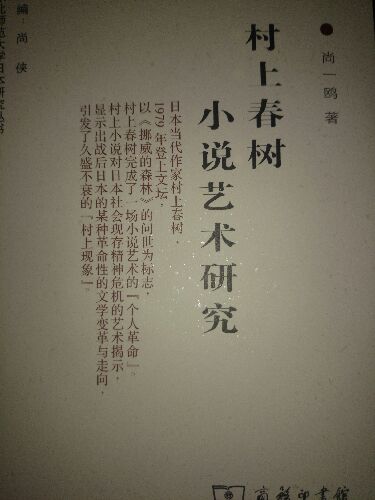 尚一鸥 著
村上春树
小说艺术研究
日本当代作家村上春树，
1979年登上文坛，
以《挪威的森林》的问世为标志，
村上春树完成了一场小说艺术的『个人革命』。
村上小说对日本社会现存精神危机的艺术揭示，
显示出战后日本的某种革命性的文学变革与走向，
引发了久盛不衰的『村上现象』。
编：尚侠
师范大学日本研究丛书
商务印书馆